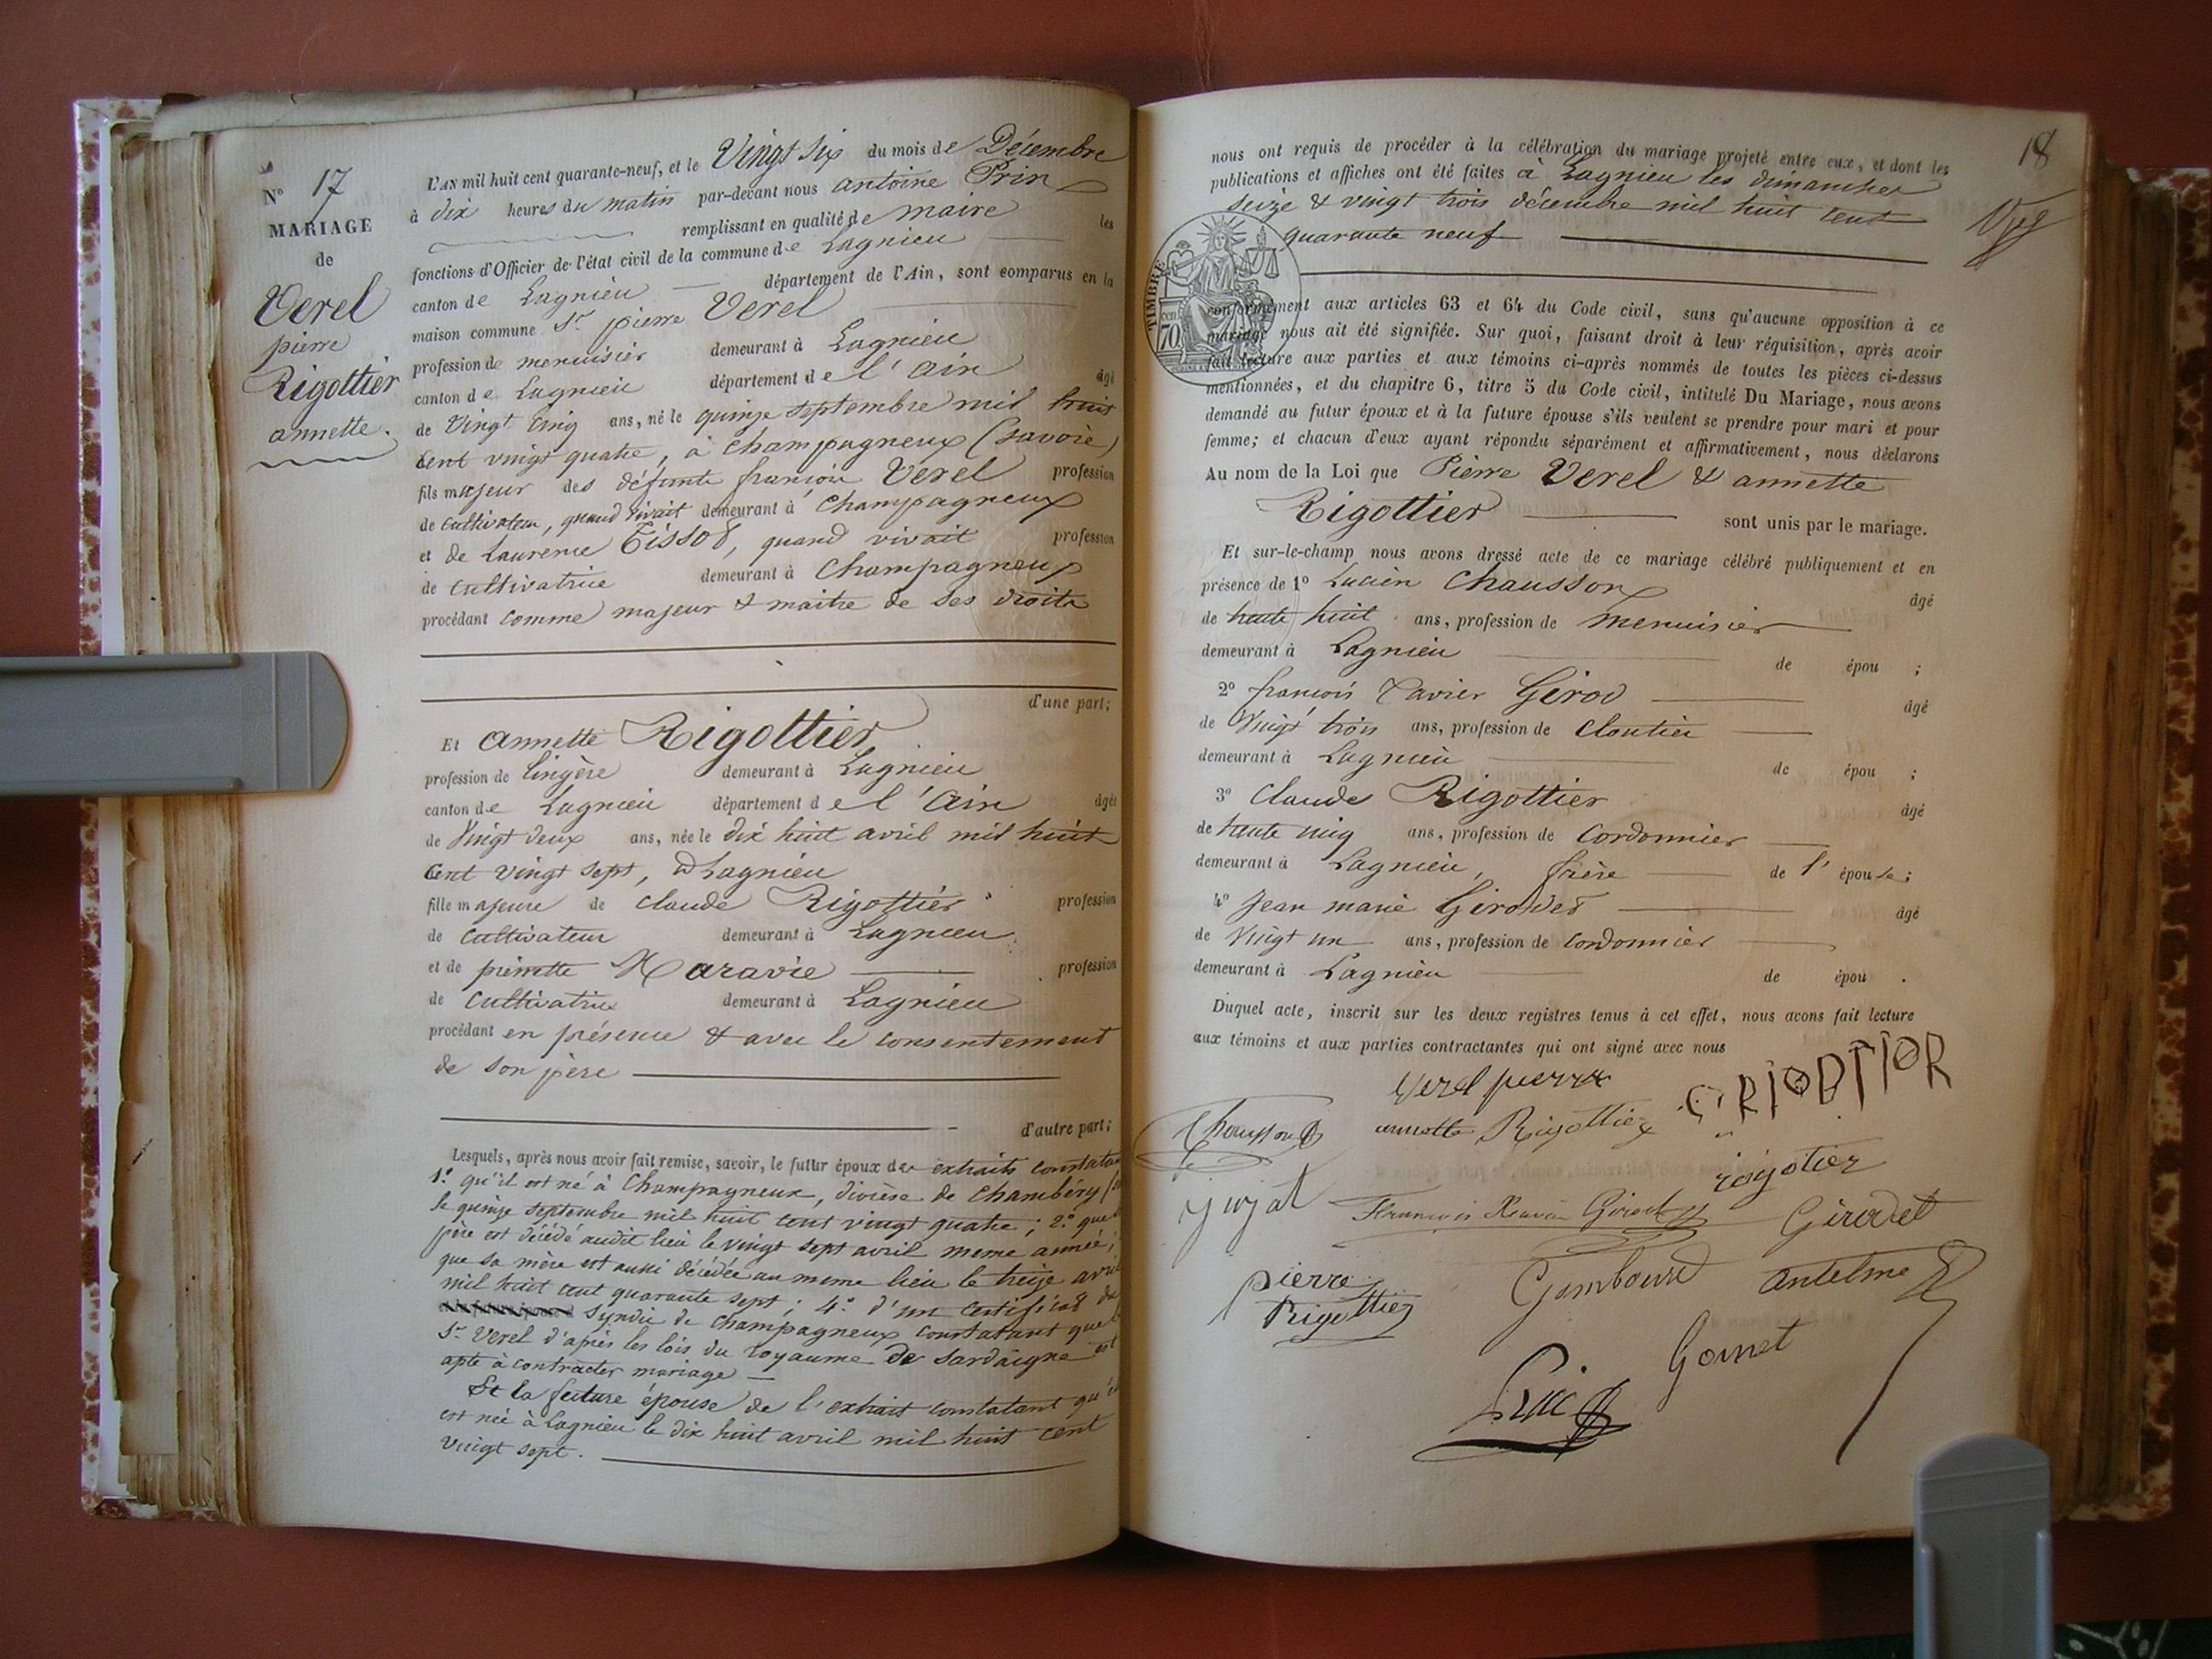 N° 17
MARIAGE
de
Verel
pierre
Rigottier
annette.
L'AN mil huit cent quarante-neuf, et le Vingt six du mois de Décembre
à dix heures du matin par-devant nous antoine Prin
remplissant en qualité de maire les
fonctions d'Officier de l'état civil de la commune de Lagnieu
canton de Lagnieu département de l'Ain, sont comparus en la
maison commune Sr pierre Verel
profession de menuisier demeurant à Lagnieu
canton de Lagnieu département de l'ain âgé
de Vingt cinq ans, né le quinze septembre mil huit
cent vingt quatre, à Champagneux (savoie)
fils majeur des défunts françois Verel profession
de cultivateur, quand vivait demeurant à Champagneux
et de Laurence Tissot, quand vivait profession
de cultivatrice demeurant à Champagneux
procédant comme majeur & maitre de ses droits
d'une part;
Et annette Rigottier
profession de lingère demeurant à Lagnieu
canton de Lagnieu département de l'ain âgée
de Vingt deux ans, née le dix huit avril mil huit
cent vingt sept, à Lagnieu
fille majeure de Claude Rigottier profession
de cultivateur demeurant à Lagnieu
et de pierrette Maravie profession
de cultivatrice demeurant à Lagnieu
procédant en présence & avec le consentement
de son père
d'autre part;
Lesquels, après nous avoir fait remise, savoir, le futur époux des extraits constatant
1° qu'il est né à Champagneux, diocèse de Chambéry
le quinze septembre mil huit cent vingt quatre; 2° que
père est décédé audit lieu le vingt sept avril meme année;
que sa mère est aussi décédée au meme lieu le treize avril
mil huit cent quarante sept; 4° d'un certificat du
syndic de Champagneux constatant que
Sr Verel d'après les lois du royaume de Sardaigne est
apte à contracter mariage
Et la future épouse de l'extrait constatant qu'
est née à Lagnieu le dix huit avril mil huit cent
vingt sept.
18
nous ont requis de procéder à la célébration du mariage projeté entre eux, et dont les
publications et affiches ont été faites à Lagnieu les dimanches
seize & vingt trois décembre mil huit cent
quarante neuf
TIMBRE
70
conformément aux articles 63 et 64 du Code civil, sans qu'aucune opposition à ce
mariage nous ait été signifiée. Sur quoi, faisant droit à leur réquisition, après avoir
fait lecture aux parties et aux témoins ci-après nommés de toutes les pièces ci-dessus
mentionnées, et du chapitre 6, titre 5 du Code civil, intitulé Du Mariage, nous avons
demandé au futur époux et à la future épouse s'ils veulent se prendre pour mari et pour
femme; et chacun d'eux ayant répondu séparément et affirmativement, nous déclarons
Au nom de la Loi que Pierre Verel & annette
Rigottier sont unis par le mariage.
Et sur-le-champ nous avons dressé acte de ce mariage célébré publiquement et en
présence de 1° Lucien Chausson âgé
de trente huit ans, profession de menuisier
demeurant à Lagnieu de épou ;
2° françois Xavier Girod âgé
de Vingt trois ans, profession de Cloutier
demeurant à Lagnieu de épou ;
3° Claude Rigottier âgé
de trente cinq ans, profession de Cordonnier
demeurant à Lagnieu, frère de l'épouse;
4° Jean marie Girodet âgé
de Vingt un ans, profession de cordonnier
demeurant à Lagnieu de épou .
Duquel acte, inscrit sur les deux registres tenus à cet effet, nous avons fait lecture
aux témoins et aux parties contractantes qui ont signé avec nous
Verel pierre
Chausson annette Rigottier
rigotier
François Xavier Girod Girodet
pierre Rigottier
antelme
Gornet
Prin